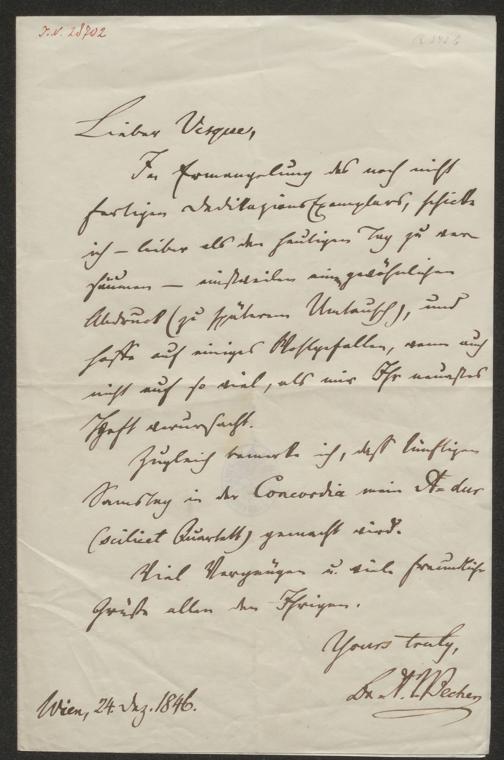 I.N. 28702
Lieber Vesque,
In Ermangelung des noch nicht
fertigen Dedikazions Exemplars, schicke
ich – lieber als den heutigen Tag zu ver-
säumen – einstweilen ein gewöhnlichen
Abdruck (zu späterem Umtausch), und
hoffe auf einiges Wohlgefallen, wenn auch
nicht auf so viel, als mir Ihr neuestes
Heft verursacht.
Zugleich bemerke ich, dass künftigen
Samstag in der Concordia mein A-dur
(scilicet Quartett) gemacht wird.
Viel Vergnügen u. viele freundliche
Grüße allen den Ihrigen.
Yours truly,
Dr. A. J. Becher
Wien, 24. Dez. 1846.